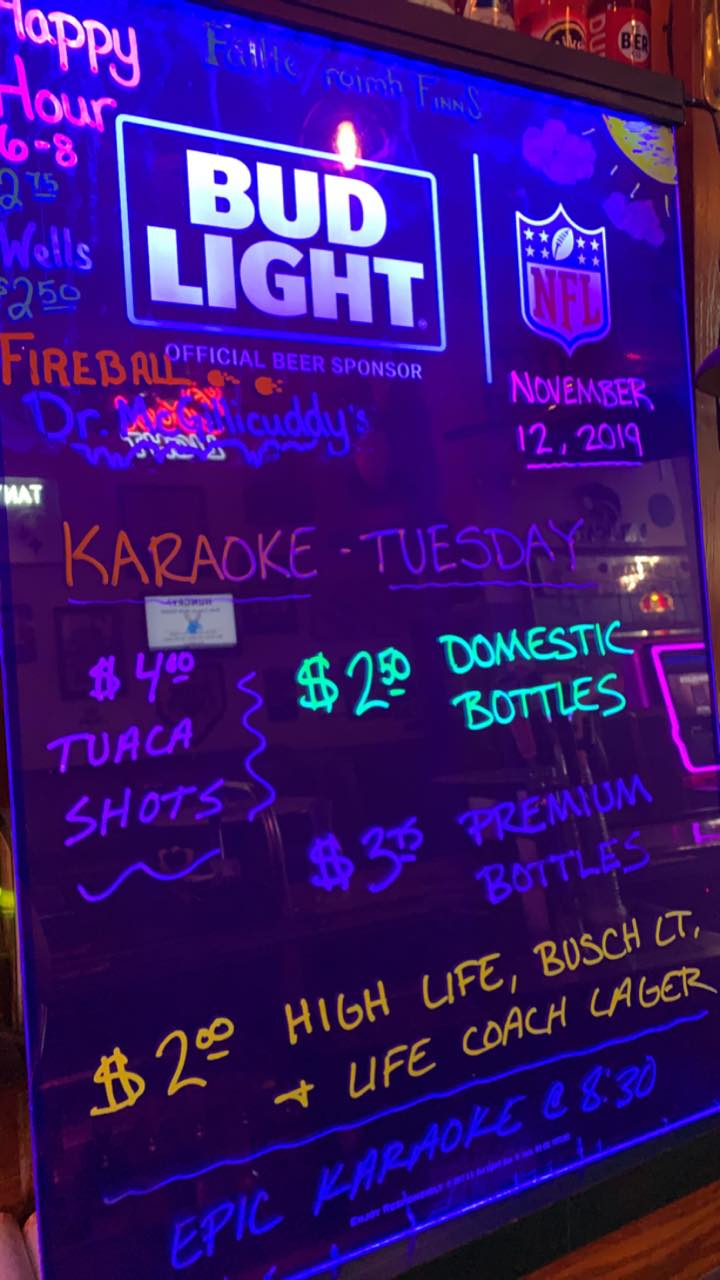 Happy
Hour
6-8
2 75
Wells
$2 50
Fáilte roimh FINNS
BUD
LIGHT
OFFICIAL BEER SPONSOR
NFL
NOVEMBER
12, 2019
FIREBALL
Dr. McGillicuddy's
KARAOKE - TUESDAY
$4 00
TUACA
SHOTS
$2 50 DOMESTIC
BOTTLES
$3 75 PREMIUM
BOTTLES
$2 00 HIGH LIFE, BUSCH LT,
+ LIFE COACH LAGER
EPIC KARAOKE @ 8:30
BEER